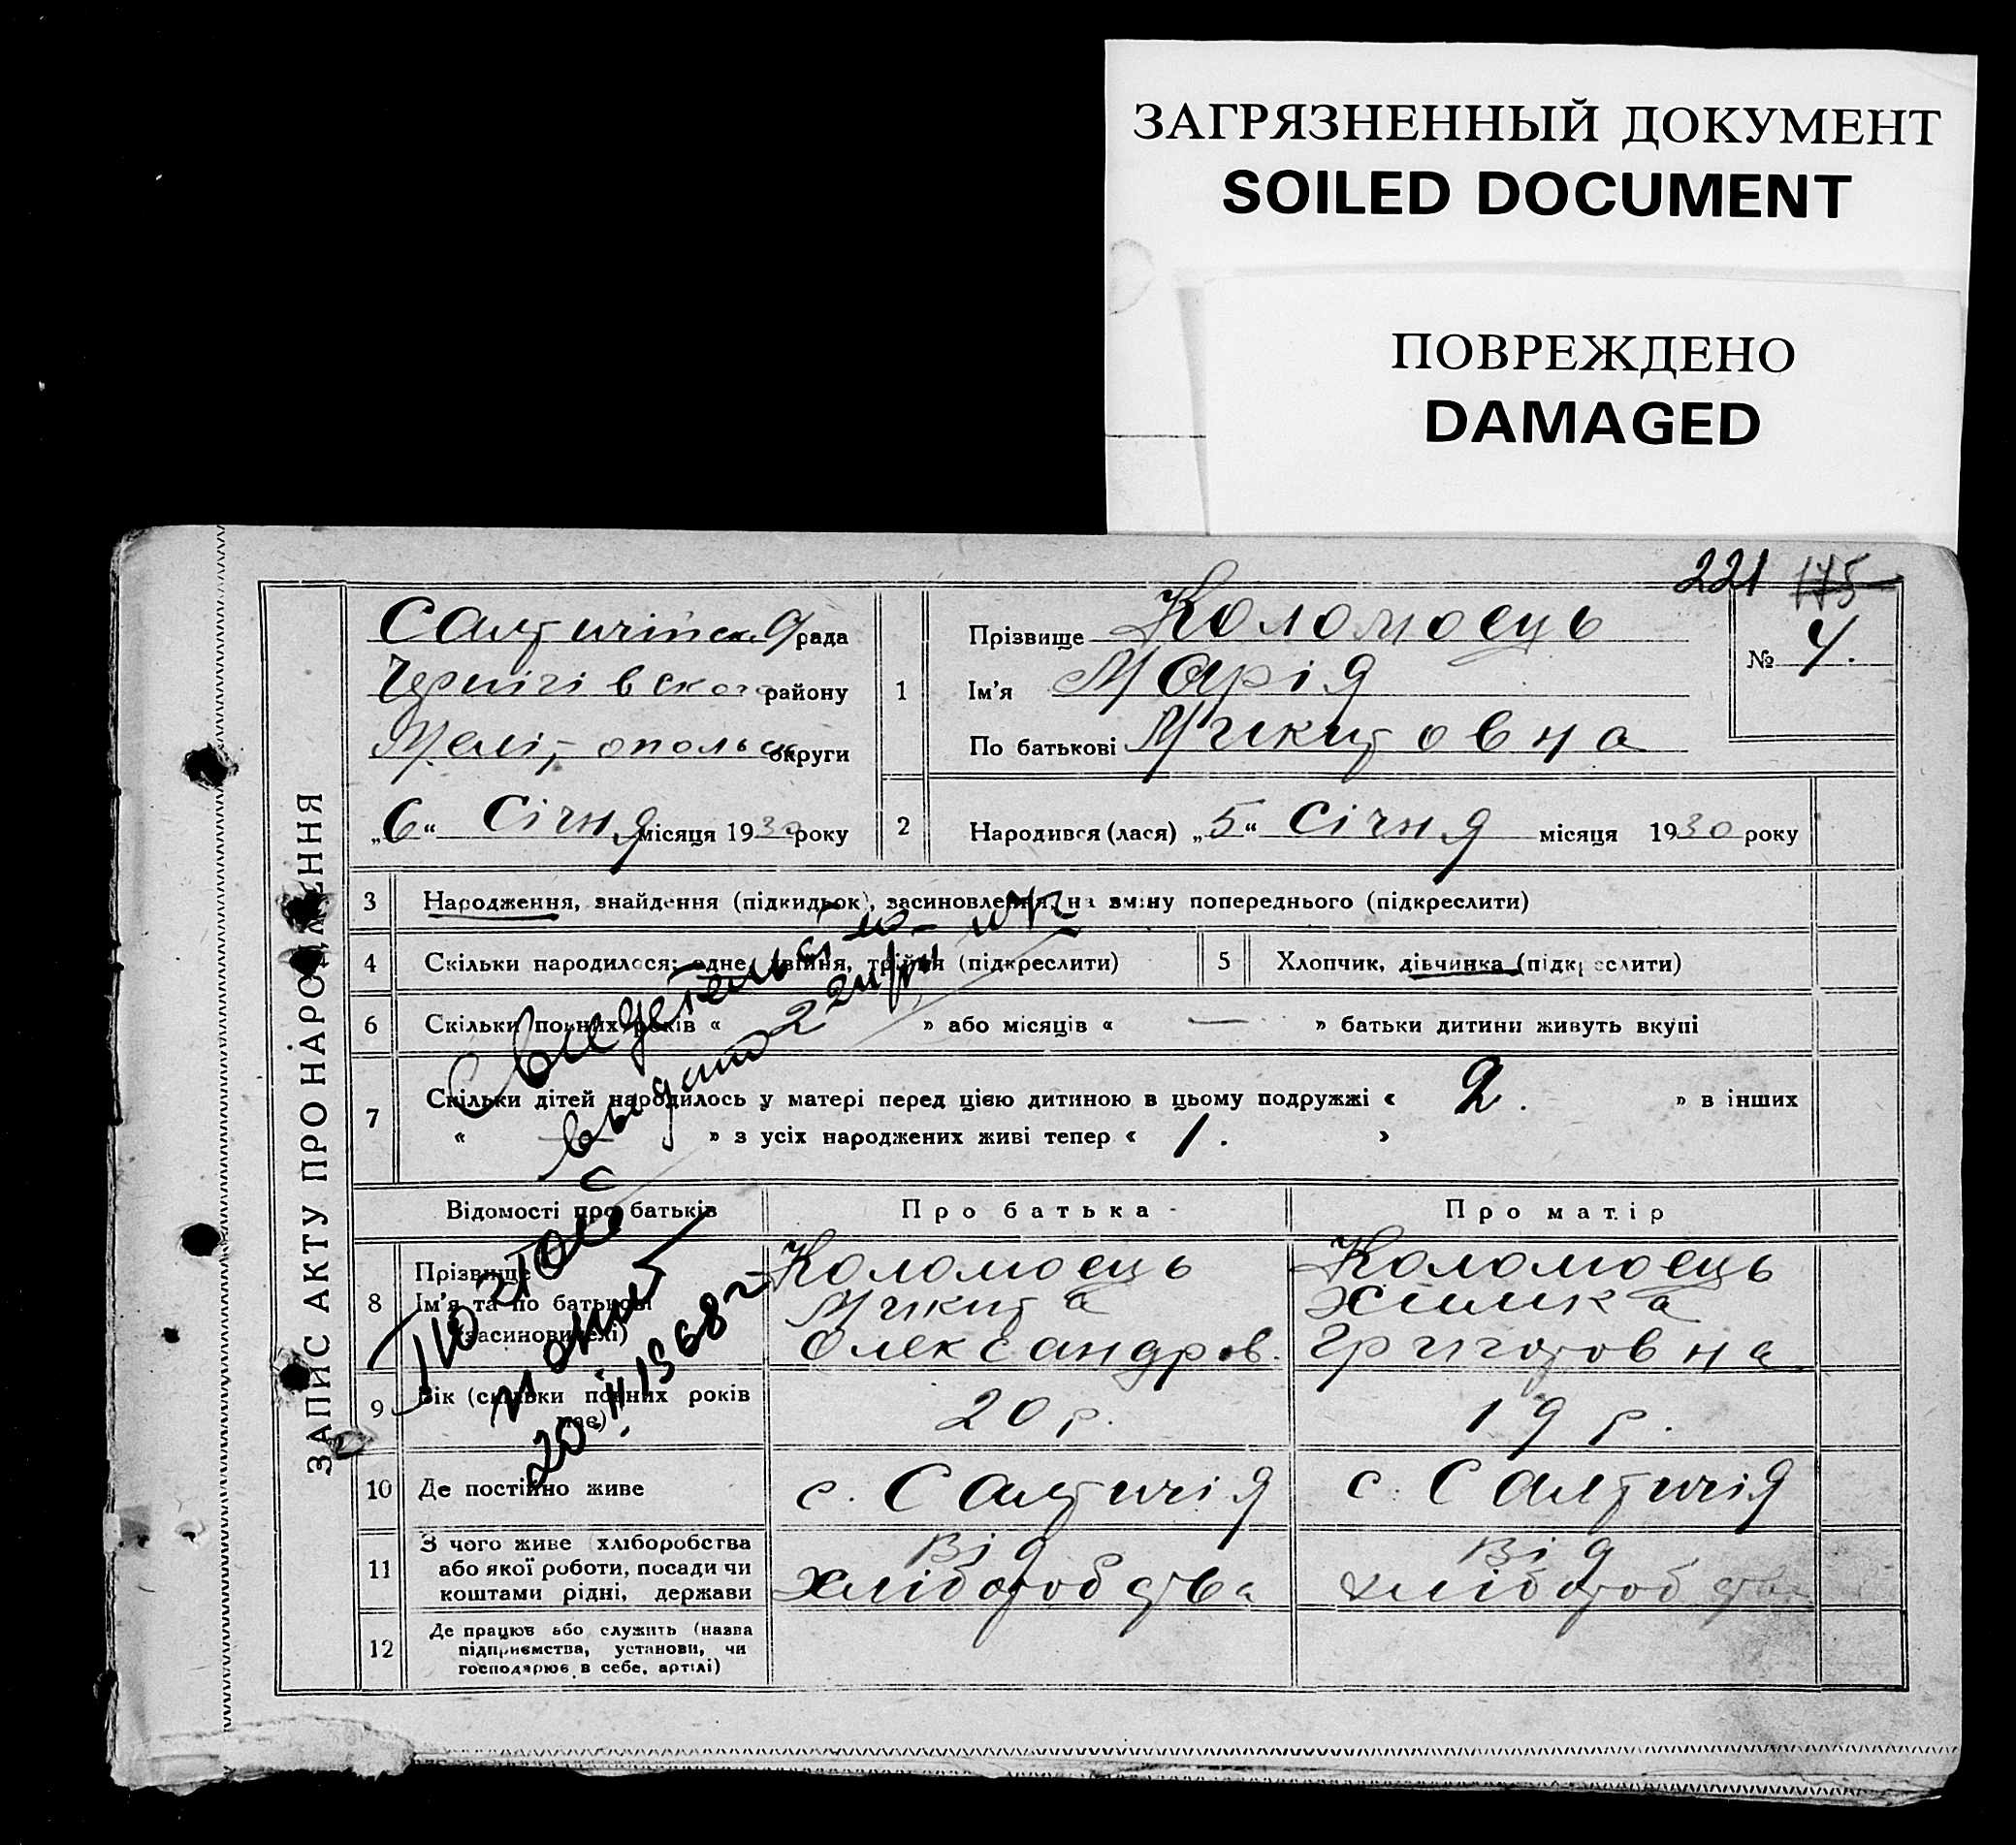 ЗАГРЯЗНЕННЫЙ ДОКУМЕНТ
SOILED DOCUMENT
ПОВРЕЖДЕНО
DAMAGED
221 175
ЗАПИС АКТУ ПРО НАРОДЖЕННЯ
Салтичійська рада
Чернігівского району
Мелітопольськ округи
„6“ Січня місяця 1930 року
1
Прізвище Коломоець
Ім'я Марія
По батькові Микитовна
№ 4.
2
Народився (лася) „5“ Січня місяця 1930 року
3 Народження, знайдення (підкидьок), засиновлення, на вміну попереднього (підкреслити)
4 Скільки народилося: одне, двійня, трійня (підкреслити)
5 Хлопчик, дівчинка (підкреслити)
6 Скільки повних років « » або місяців « — » батьки дитини живуть вкупі
7 Скільки дітей народилось у матері перед цією дитиною в цьому подружжі « 2. » в інших
« — » з усіх народжених живі тепер « 1. »
Відомості про батьків Про батька Про матір
8 Прізвище
Ім'я та по батькові
(засиновителі)
Коломоець
Микита
Олександров.
Коломоець
Химка
Григоровна
9 Вік (скільки повних років має)
20 р.
19 р.
10 Де постійно живе
с. Салтичія
с. Салтичія
11 З чого живе (хліборобства
або якої роботи, посади чи
коштами рідні, держави
Від
хліборобства
Від
хліборобства
12 Де працює або служить (назва
підприємства, установи, чи
господарює в себе, артілі)
Свидетельство
выдано
20.II 1968 г